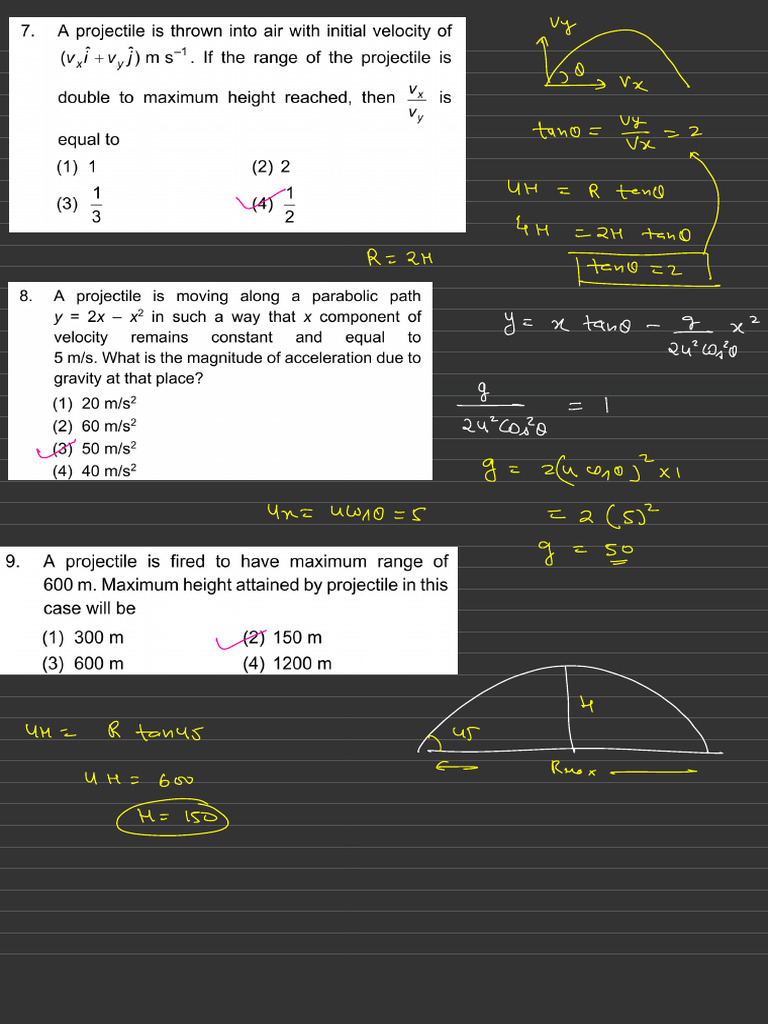 7. A projectile is thrown into air with initial velocity of
(vₓî + vᵧĵ) m s⁻¹. If the range of the projectile is
double to maximum height reached, then vₓ/vᵧ is
equal to
(1) 1 (2) 2
(3) 1/3 (4) 1/2
R = 2H
Vy
θ
Vx
tanθ = Vy/Vx = 2
4H = R tanθ
4H = 2H tanθ
tanθ = 2
8. A projectile is moving along a parabolic path
y = 2x – x² in such a way that x component of
velocity remains constant and equal to
5 m/s. What is the magnitude of acceleration due to
gravity at that place?
(1) 20 m/s²
(2) 60 m/s²
(3) 50 m/s²
(4) 40 m/s²
y = x tanθ – g/2u²cos²θ x²
g/2u²cos²θ = 1
g = 2(u cosθ)² x1
ux = ucosθ = 5
= 2 (5)²
g = 50
9. A projectile is fired to have maximum range of
600 m. Maximum height attained by projectile in this
case will be
(1) 300 m (2) 150 m
(3) 600 m (4) 1200 m
4H = R tan45
4H = 600
H = 150
H
45
Rmax